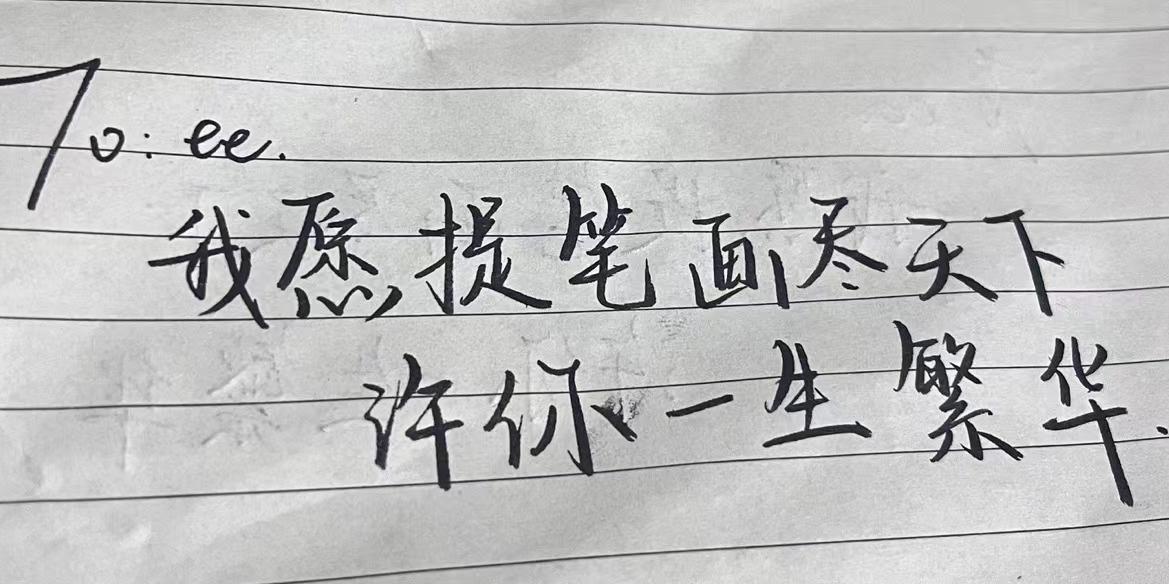 To: ee.
我愿提笔画尽天下
许你一生繁华.